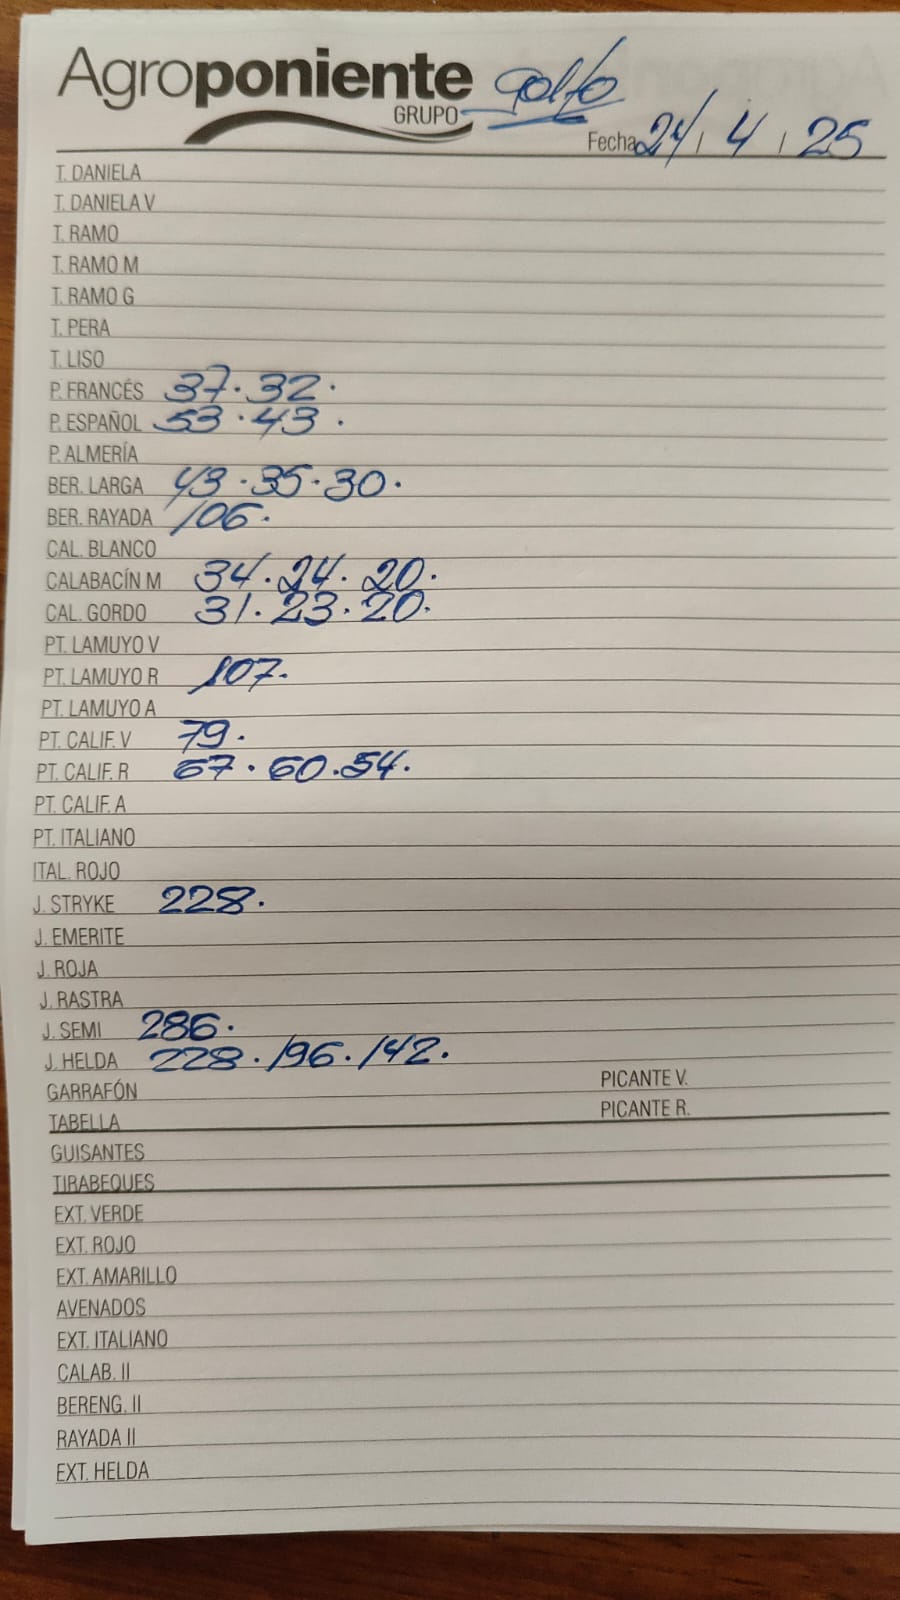 Agroponiente Golfo
GRUPO
Fecha 24 / 4 / 25
T. DANIELA
T. DANIELA V
T. RAMO
T. RAMO M
T. RAMO G
T. PERA
T. LISO
P. FRANCÉS 37. 32.
P. ESPAÑOL 53. 43.
P. ALMERÍA
BER. LARGA 43. 35. 30.
BER. RAYADA 106.
CAL. BLANCO
CALABACÍN M 34. 24. 20.
CAL. GORDO 31. 23. 20.
PT. LAMUYO V
PT. LAMUYO R 107.
PT. LAMUYO A
PT. CALIF. V 79.
PT. CALIF. R 67. 60. 54.
PT. CALIF. A
PT. ITALIANO
ITAL. ROJO
J. STRYKE 228.
J. EMERITE
J. ROJA
J. RASTRA
J. SEMI 286.
J. HELDA 228. 196. 142.
GARRAFÓN PICANTE V.
TABELLA PICANTE R.
GUISANTES
TIRABEQUES
EXT. VERDE
EXT. ROJO
EXT. AMARILLO
AVENADOS
EXT. ITALIANO
CALAB. II
BERENG. II
RAYADA II
EXT. HELDA